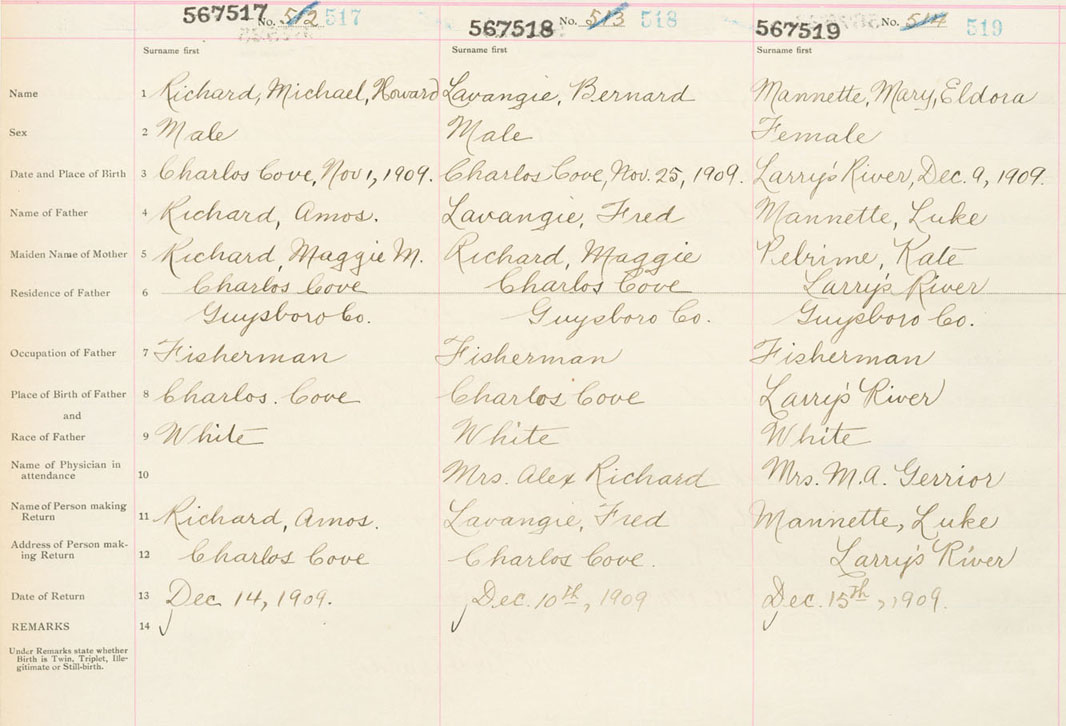 567517 No. 512 517 567518 No. 513 518 567519 No. 514 519
Surname first Surname first Surname first
Name 1 Richard, Michael, Howard Lavangie, Bernard Mannette, Mary, Eldora
Sex 2 Male Male Female
Date and Place of Birth 3 Charlos Cove, Nov 1, 1909. Charlos Cove, Nov. 25, 1909. Larry's River, Dec. 9, 1909.
Name of Father 4 Richard, Amos. Lavangie, Fred Mannette, Luke
Maiden Name of Mother 5 Richard, Maggie M. Richard, Maggie Pelrime, Kate
Residence of Father 6 Charlos Cove Charlos Cove Larry's River
Guysboro Co. Guysboro Co. Guysboro Co.
Occupation of Father 7 Fisherman Fisherman Fisherman
Place of Birth of Father 8 Charlos. Cove Charlos Cove Larry's River
and
Race of Father 9 White White White
Name of Physician in
attendance 10 Mrs. Alex Richard Mrs. M.A. Gerrior
Name of Person making
Return 11 Richard, Amos. Lavangie, Fred Mannette, Luke
Address of Person mak-
ing Return 12 Charlos Cove Charlos Cove. Larry's River
Date of Return 13 Dec 14, 1909. Dec. 10th, 1909 Dec. 15th, 1909.
REMARKS 14
Under Remarks state whether
Birth is Twin, Triplet, Ille-
gitimate or Still-birth.